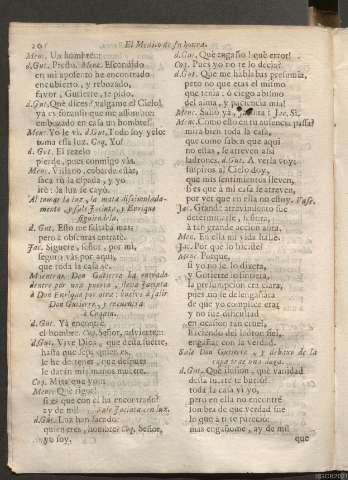 El Medico de su honra.
Men. Un hombre:::
d.Gut. Presto. Men. Escondido
en mi aposento he encontrado
encubierto, y rebozado,
favor, Gutierre, te pido.
d.Gut. Què dices? valgame el Cielo!
ya es forzoso que me assombre:
embozado en casa un hombre?
Men. Yo le vi. d.Gut. Todo soy yelo:
toma essa luz. Coq. Yo?
d. Gut. El rezelo
pierde, pues conmigo vàs.
Men. Villano, cobarde estàs,
saca tu la espada, y yo
irè: la luz se cayò.
Al tomar la luz, la mata dissimuladamente,
y sale Jacinta, y Enrique
siguiendola.
d. Gut. Esto me faltaba mas;
pero à obscuras entrarè.
Jac. Sigueme, señor, por mi,
seguro vàs por aqui,
que toda la casa sè.
Mientras Don Gutierre ha entrado
dentro por una puerta, lleva Jacinta
à Don Enrique por otra: vuelve à salir
Don Gutierre, y encuentra
à Coquin.
d.Gut. Ya encontrè
el hombre. Coq. Señor, advierte:::
d.Gut. Vive Dios, que desta suerte,
hasta que sepa quien es,
le he de tener, que despues
le daràn mis manos muerte.
Coq. Mira que yo:::
Men. Què rigor!
si es que con èl ha encontrado?
ay de mi! Sale Jacinta con luz.
d.Gut. Luz han sacado:
quien eres, hombre? Coq. Señor,
yo soy.
d.Gut. Què engaño! què error!
Coq. Pues yo no te lo decia?
d.Gut. Que me hablabas presumia,
pero no que eras el mismo
que tenia: ò ciego abismo
del alma, y paciencia mia!
Men. Saliò ya, Jacinta? Jac. Sì.
Men. Como esto en tu ausencia passa?
mira bien toda la casa,
que como saben que aqui
no estàs, se atreven assi
ladrones. d.Gut. A verla voy:
suspiros al Cielo doy,
que mis sentimientos lleven,
si es que à mi casa se atreven,
por ver que en ella no estoy. Vase.
Jac. Grande atrevimiento fue
determinarte, señora,
à tan grande accion ahora.
Men. En ella mi vida hallè.
Jac. Por què lo hiciste?
Men. Porque,
si yo no se lo dixera,
y Gutierre lo sintiera,
la presumpcion era clara,
pues no se desengañara
de que yo complice era;
y no fue dificultad
en ocasion tan cruel,
haciendo del ladron fiel,
engañar con la verdad.
Sale Don Gutierre, y debaxo de la
capa trae una daga.
d.Gut. Què ilusion, què vanidad
desta suerte te burlò?
toda la casa vi yo,
pero en ella no encontrè
sombra de que verdad fue
lo que à ti te pareciò:
mas engañome, ay de mi!
que